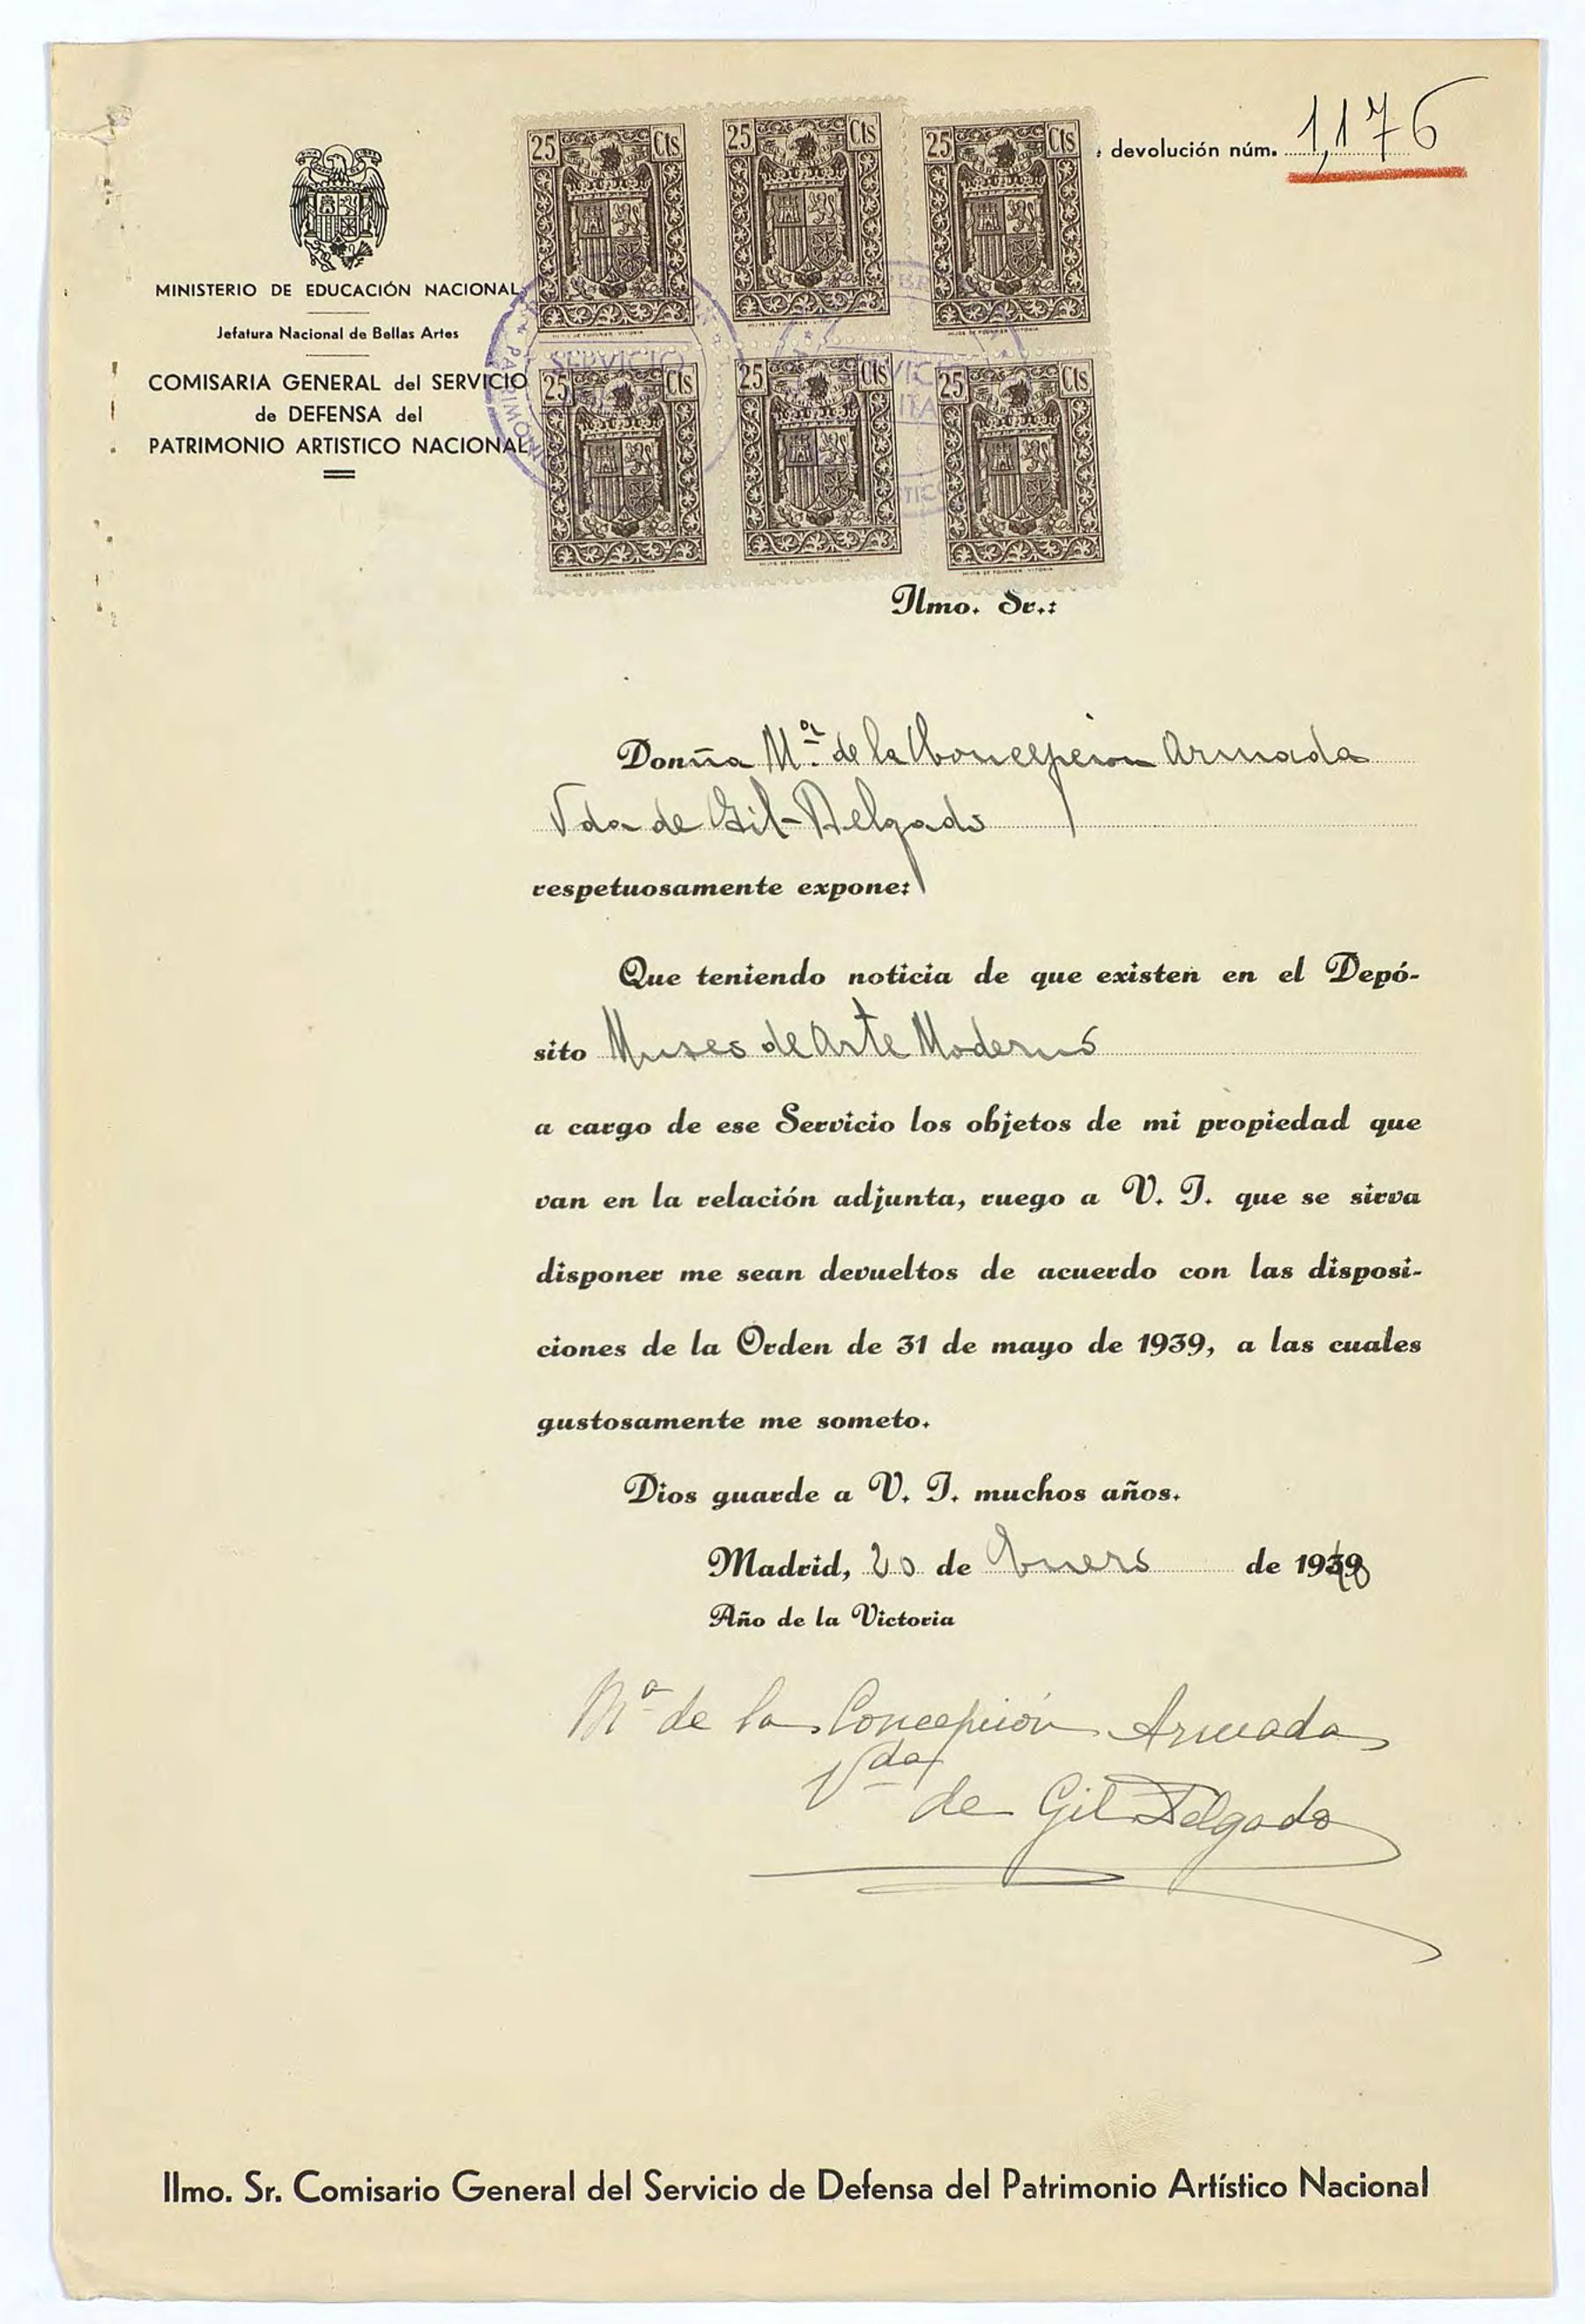 devolución núm. 1,176
25 Cts
25 Cts
25 Cts
HIJOS DE FOURNIER VITORIA
HIJOS DE FOURNIER VITORIA
HIJOS DE FOURNIER VITORIA
MINISTERIO DE EDUCACIÓN NACIONAL
Jefatura Nacional de Bellas Artes
COMISARIA GENERAL del SERVICIO
de DEFENSA del
PATRIMONIO ARTISTICO NACIONAL
SERVICIO
25 Cts
25 Cts
25 Cts
HIJOS DE FOURNIER VITORIA
HIJOS DE FOURNIER VITORIA
HIJOS DE FOURNIER VITORIA
Ilmo. Sr.:
Donña Mª de la Concepcion Armada
Vda de Gil-Delgado
respetuosamente expone:
Que teniendo noticia de que existen en el Depó-
sito Museo de Arte Moderno
a cargo de ese Servicio los objetos de mi propiedad que
van en la relación adjunta, ruego a V. I. que se sirva
disponer me sean devueltos de acuerdo con las disposi-
ciones de la Orden de 31 de mayo de 1939, a las cuales
gustosamente me someto.
Dios guarde a V. I. muchos años.
Madrid, 20 de Enero de 1940
Año de la Victoria
Mª de la Concepción Armada
Vda de Gil Delgado
Ilmo. Sr. Comisario General del Servicio de Defensa del Patrimonio Artístico Nacional